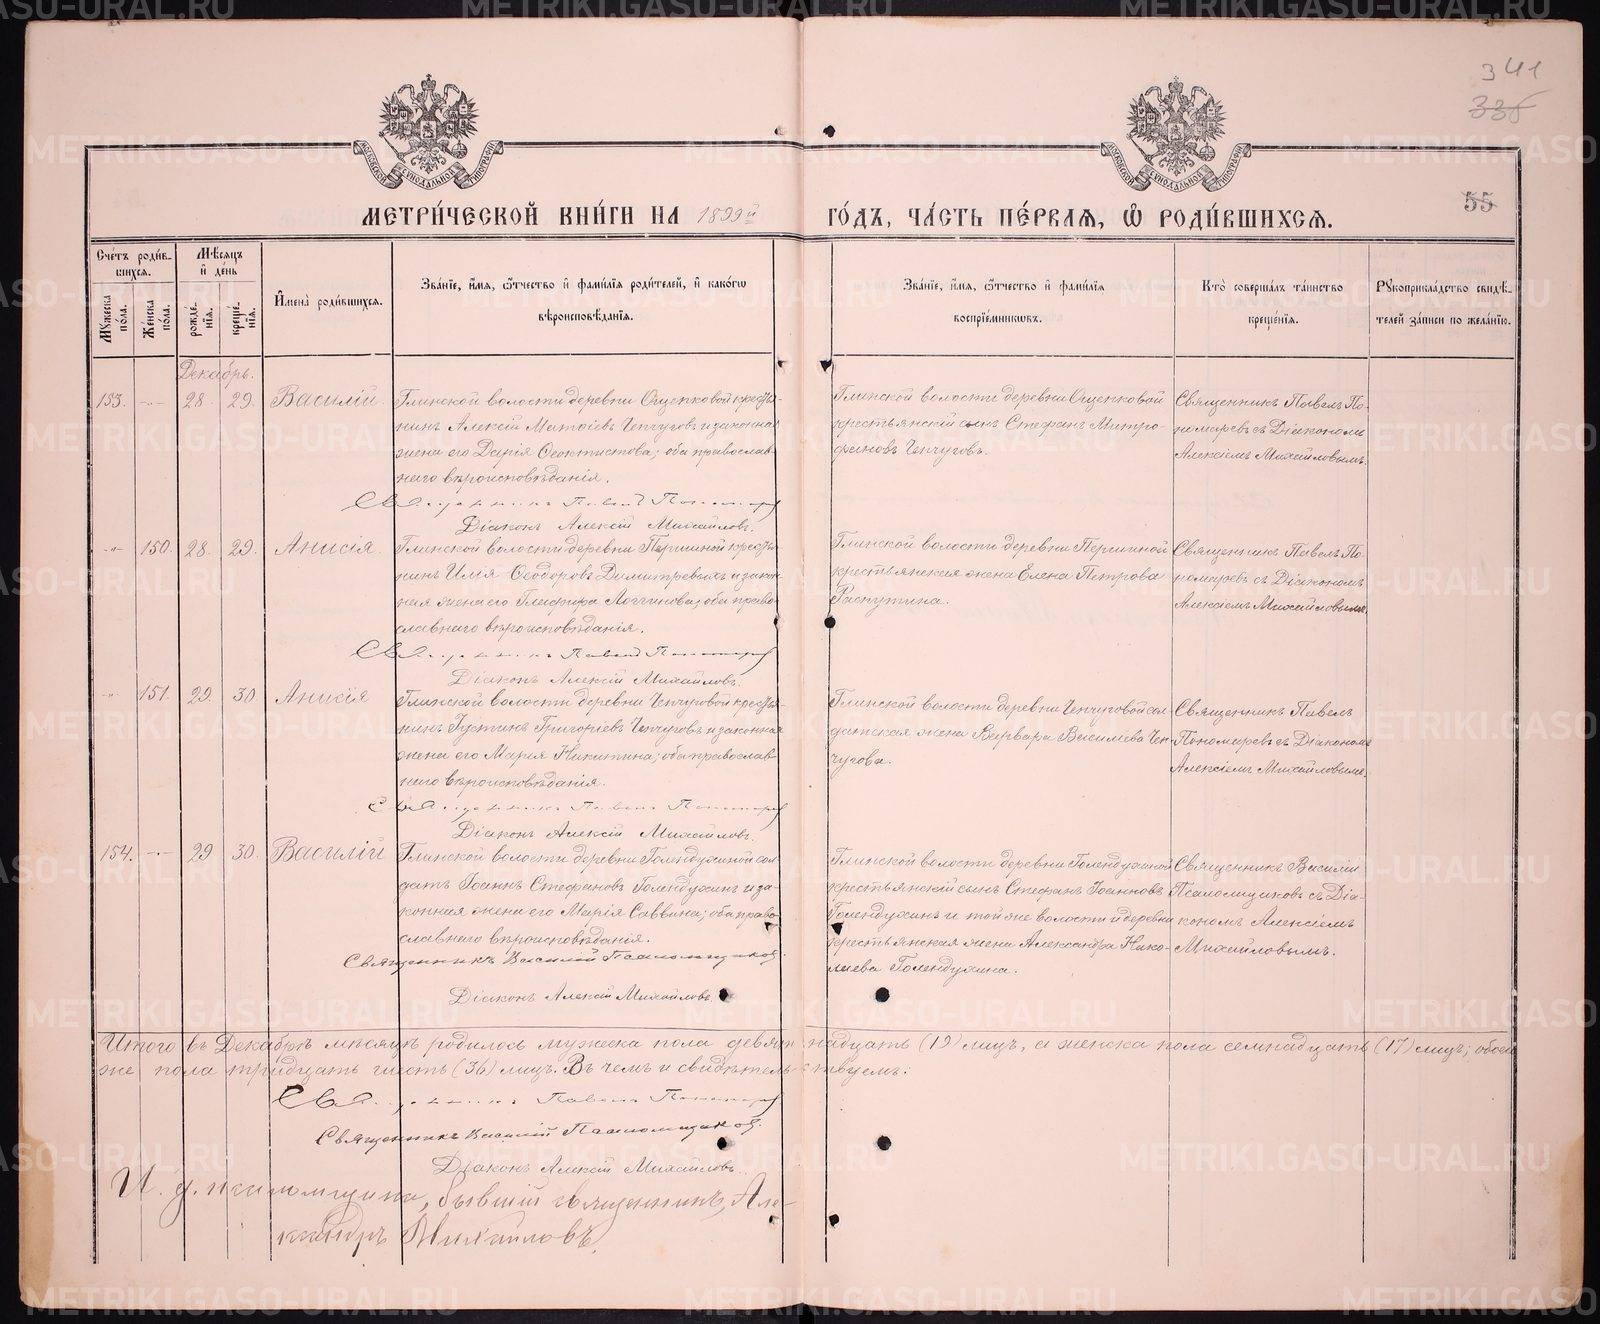 341
335
55
МЕТРИ́ЧЕСКОЙ КНИ́ГИ НА 1899й ГО́ДЪ, ЧА́СТЬ ПЕ́РВАЯ, Ѡ РОДИ́ВШИХСЯ.
Сче́тъ роди́вшихся.
Му́жеска по́ла.
Же́нска по́ла.
Мѣ́сяцъ и҆ де́нь
рожде́нїѧ.
креще́нїѧ.
И҆мена̀ роди́вшихся.
Зва́нїе, и҆́мѧ, ѻ҆́тчество и҆ фами́лїѧ роди́телей, и҆ како́гѡ
вѣроисповѣ́данїѧ.
Зва́нїе, и҆́мѧ, ѻ҆́тчество и҆ фами́лїѧ
воспрїе́мникѡвъ.
Кто̀ соверша́лъ та́инство
креще́нїѧ.
Рꙋкоприкла́дство свидѣ́-
телей за́писи по жела́нїю.
Декабрь.
153. -"- 28. 29. Василій
Глинской волости деревни Ощепковой крестья-
нинъ Алексѣй Матѳіевъ Чепчуговъ и законная
жена его Дарія Ѳеоктистова; оба православ-
наго вѣроисповѣданія.
Священникъ Павелъ Пономаревъ
Діаконъ Алексій Михайловъ.
Глинской волости деревни Ощепковой
крестьянскій сынъ Стефанъ Митро-
фановъ Чепчуговъ.
Священникъ Павелъ По-
номаревъ съ Діакономъ
Алексіемъ Михайловымъ.
-"- 150. 28. 29. Анисія.
Глинской волости деревни Першиной крестья-
нинъ Илія Ѳеодоровъ Димитревыхъ и закон-
ная жена его Глафира Логгинова; оба право-
славнаго вѣроисповѣданія.
Священникъ Павелъ Пономаревъ
Діаконъ Алексій Михайловъ.
Глинской волости деревни Першиной
крестьянская жена Елена Петрова
Распутина.
Священникъ Павелъ По-
номаревъ съ Діакономъ
Алексіемъ Михайловымъ.
-"- 151. 29. 30 Анисія
Глинской волости деревни Чепчуговой крестья-
нинъ Іустинъ Григоріевъ Чепчуговъ и законная
жена его Марія Никитина; оба православ-
наго вѣроисповѣданія.
Священникъ Павелъ Пономаревъ
Діаконъ Алексій Михайловъ.
Глинской волости деревни Чепчуговой сол-
датская жена Варвара Васильева Чеп-
чугова.
Священникъ Павелъ
Пономаревъ съ Діакономъ
Алексіемъ Михайловымъ.
154. -"- 29 30. Василій
Глинской волости деревни Голендухиной сол-
датъ Іоаннъ Стефановъ Голендухинъ и за-
конная жена его Марія Саввина; оба право-
славнаго вѣроисповѣданія.
Священникъ Василій Псаломщиковъ.
Діаконъ Алексій Михайловъ.
Глинской волости деревни Голендухиной
крестьянскій сынъ Стефанъ Іоанновъ
Голендухинъ и той же волости и деревни
крестьянская жена Александра Нико-
лаева Голендухина.
Священникъ Василій
Псаломщиковъ съ Діа-
кономъ Алексіемъ
Михайловымъ.
Итого въ Декабрѣ мѣсяцѣ родилось мужеска пола девятнадцать (19) лицъ, а женска пола семнадцать (17) лицъ; обоего
же пола тридцать шесть (36) лицъ. Въ чемъ и свидѣтельствуемъ:
Священникъ Павелъ Пономаревъ
Священникъ Василій Псаломщиковъ.
Діаконъ Алексій Михайловъ.
И. д. псаломщика, бывшій священникъ, Але-
ксандръ Михайловъ.
METRIKI.GASO-URAL.RU